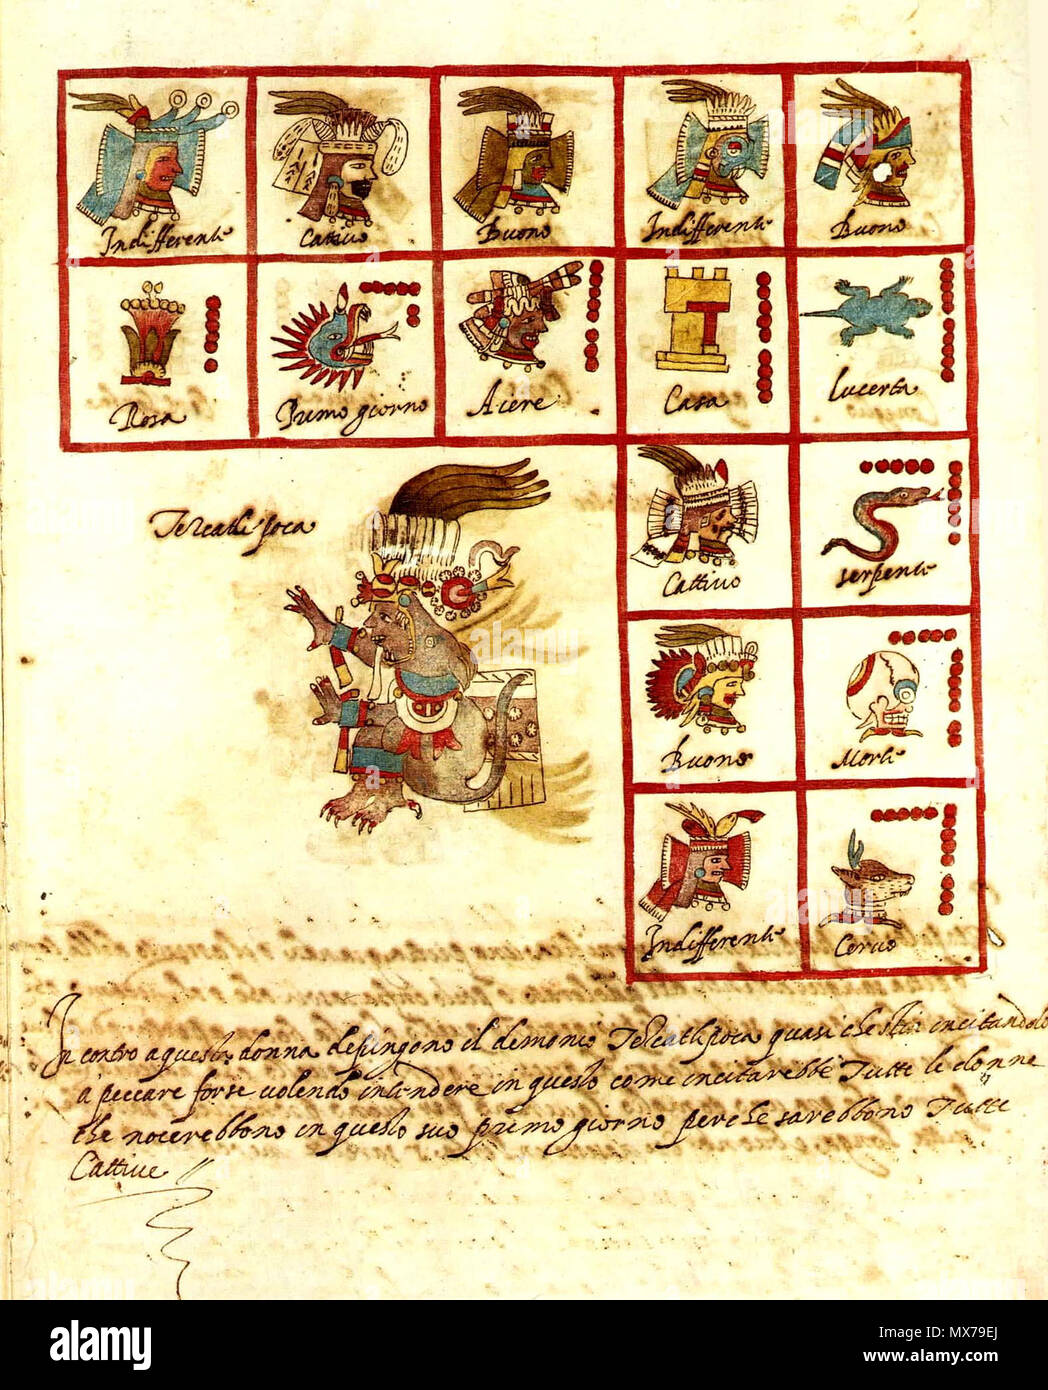 Indifferente Cattiuo Buono Indifferente Buono
Rosa Primo giorno Aiere Casa Lucerta
Tezcatlipoca
Cattiuo serpente
Buono Morte
Indifferente Ceruo
In contro a questa donna depingono il demonio Tezcatlipoca quasi che stia incitandolo
a peccare forse uolendo intendere in questo come incitarebbe Tutte le donne
che nocerebbono in questo suo primo giorno perche sarebbono Tutte
Cattiue
alamy stock photo
alamy
MX79EJ
www.alamy.com